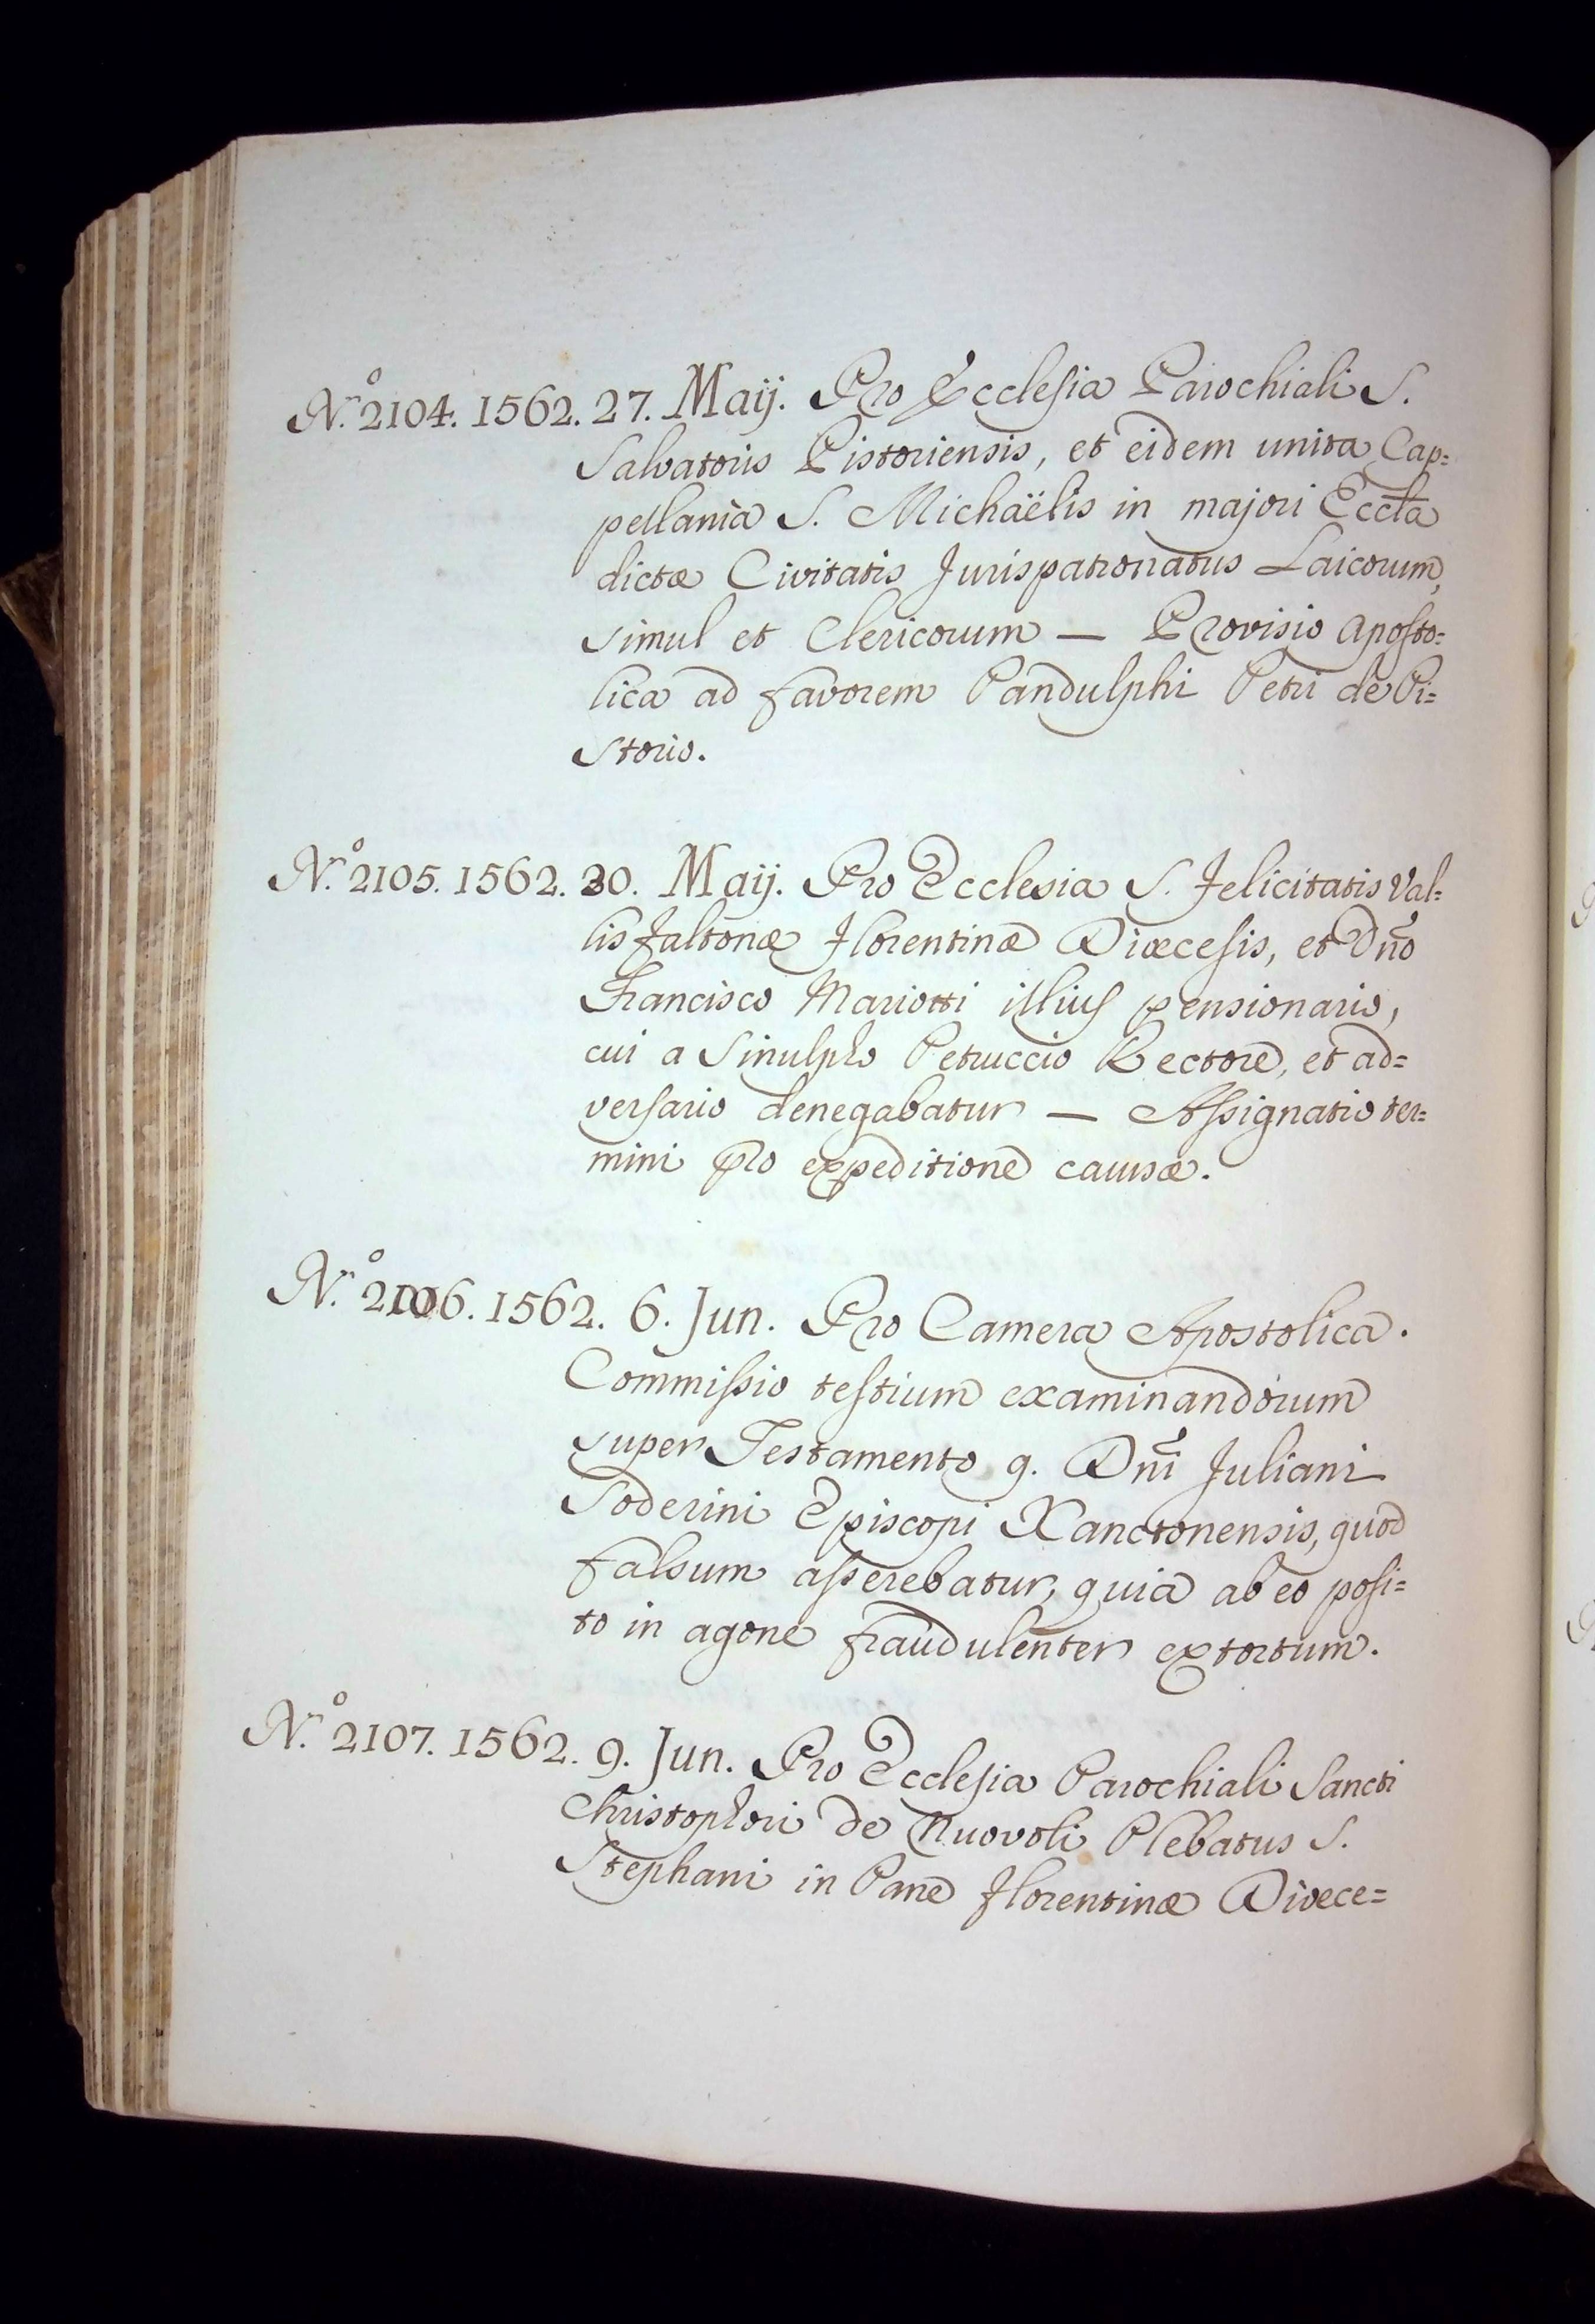 N.º 2104. 1562. 27. Maij. Pro Ecclesia Parochiali S.
Salvatoris Pistoriensis, et eidem unita Cap=
pellania S. Michaëlis in majori Eccta
dictæ Civitatis Jurispatronatus Laicorum,
simul et Clericorum — Provisio Aposto=
lica ad favorem Pandulphi Petri de Pi=
storio.
N.º 2105. 1562. 30. Maij. Pro Ecclesia S. Felicitatis Val=
lis Faltonæ Florentinæ Diœcesis, et Dño
Francisco Mariotti illius pensionario,
cui a Sinulpho Petruccio Rectore, et ad=
versario denegabatur — Assignatio ter=
mini pro expeditione causæ.
N.º 2106. 1562. 6. Jun. Pro Camera Apostolica.
Commissio testium examinandorum
super Testamento q. Dñi Juliani
Soderini Episcopi Xanctonensis, quod
falsum asserebatur, quia ab eo posi=
to in agone fraudulenter extortum.
N.º 2107. 1562. 9. Jun. Pro Ecclesia Parochiali Sancti
Christophori de Nuovoli Plebatus S.
Stephani in Pane Florentinæ Diœce=